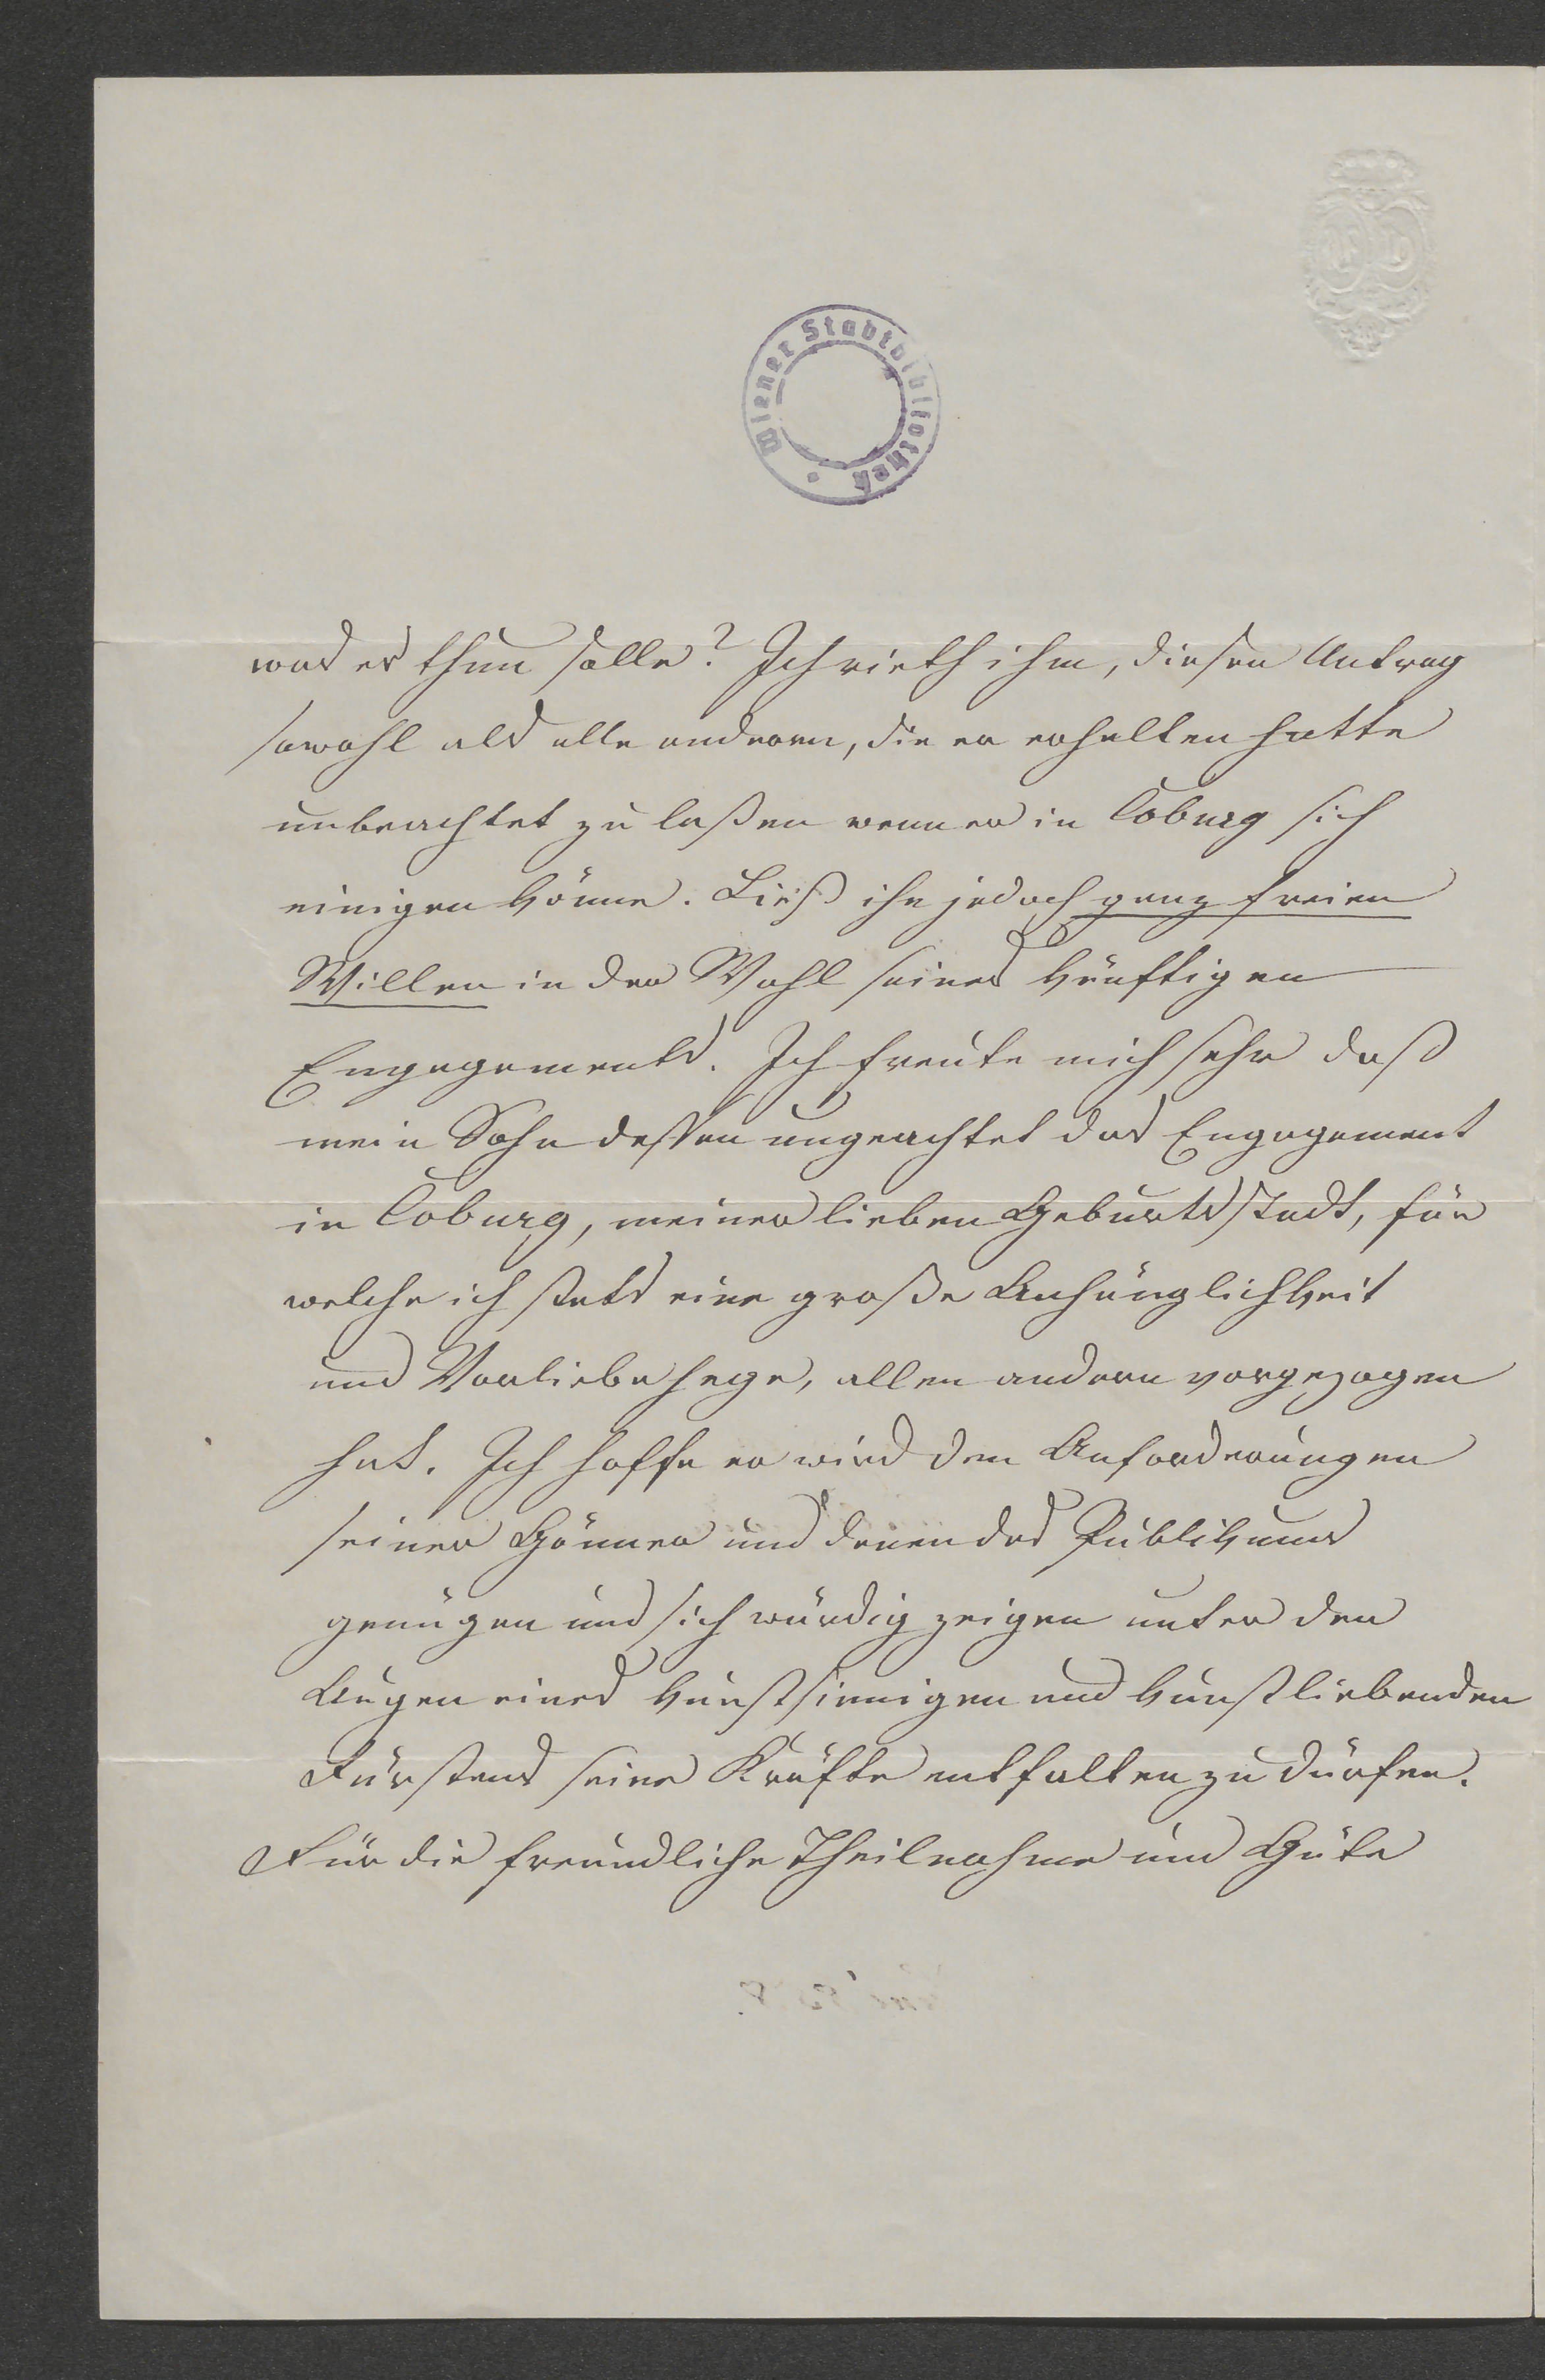 Wiener Stadtbibliothek
was er thun solle? Ich rieth ihm, diesen Antrag
sowohl als alle anderen, die er erhalten hatte
unbeachtet zu laßen wenn er in Coburg sich
einigen könne. Ließ ihn jedoch ganz freien
Willen in der Wahl seines künftigen
Engagements. Ich freute mich sehr daß
mein Sohn dessen ungeachtet das Engagement
in Coburg, meiner lieben Geburtsstadt, für
welche ich stets eine große Anhänglichkeit
und Vorliebe hege, allen andern vorgezogen
hat. Ich hoffe er wird den Anforderungen
seiner Gönner und denen des Publikums
genügen und sich würdig zeigen unter den
Augen eines kunstsinnigen und kunstliebenden
Fürstens seine Kräfte entfalten zu dürfen.
Für die freundliche Theilnahme und Güte